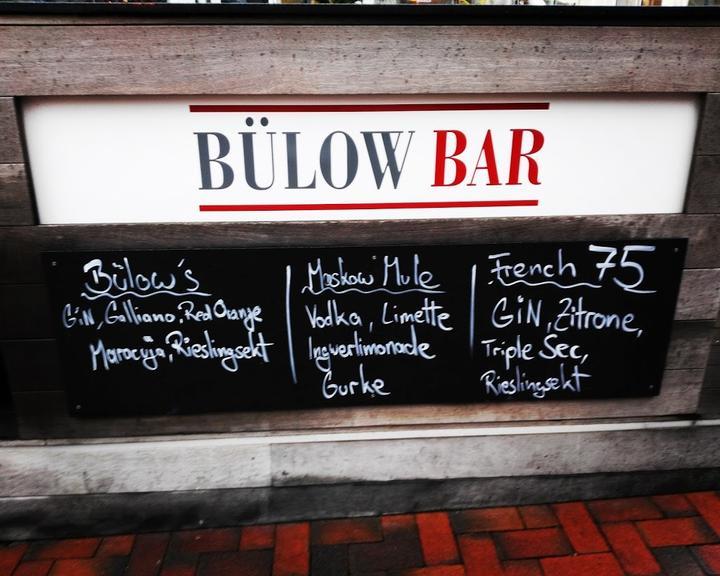 BÜLOW BAR
Bülow's
Gin, Galliano, Red Orange
Maracuja, Rieslingsekt
Moskow Mule
Vodka, Limette
Ingwerlimonade
Gurke
French 75
GiN, Zitrone,
Triple Sec,
Rieslingsekt